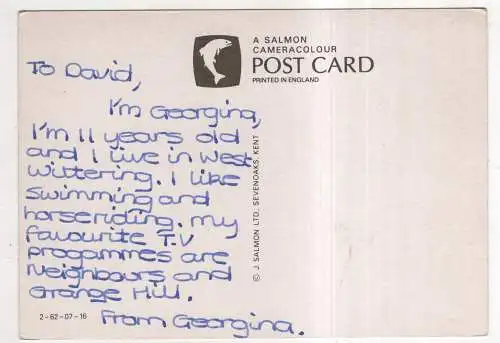 A SALMON
CAMERACOLOUR
POST CARD
PRINTED IN ENGLAND
To David,
I'm Georgina,
I'm 11 years old
and I live in West
wittering. I like
swimming and
horseriding. My
favourite T.V
progammes are
Neighbours and
Grange Hill.
From Georgina.
2-62-07-16
© J. SALMON LTD., SEVENOAKS, KENT